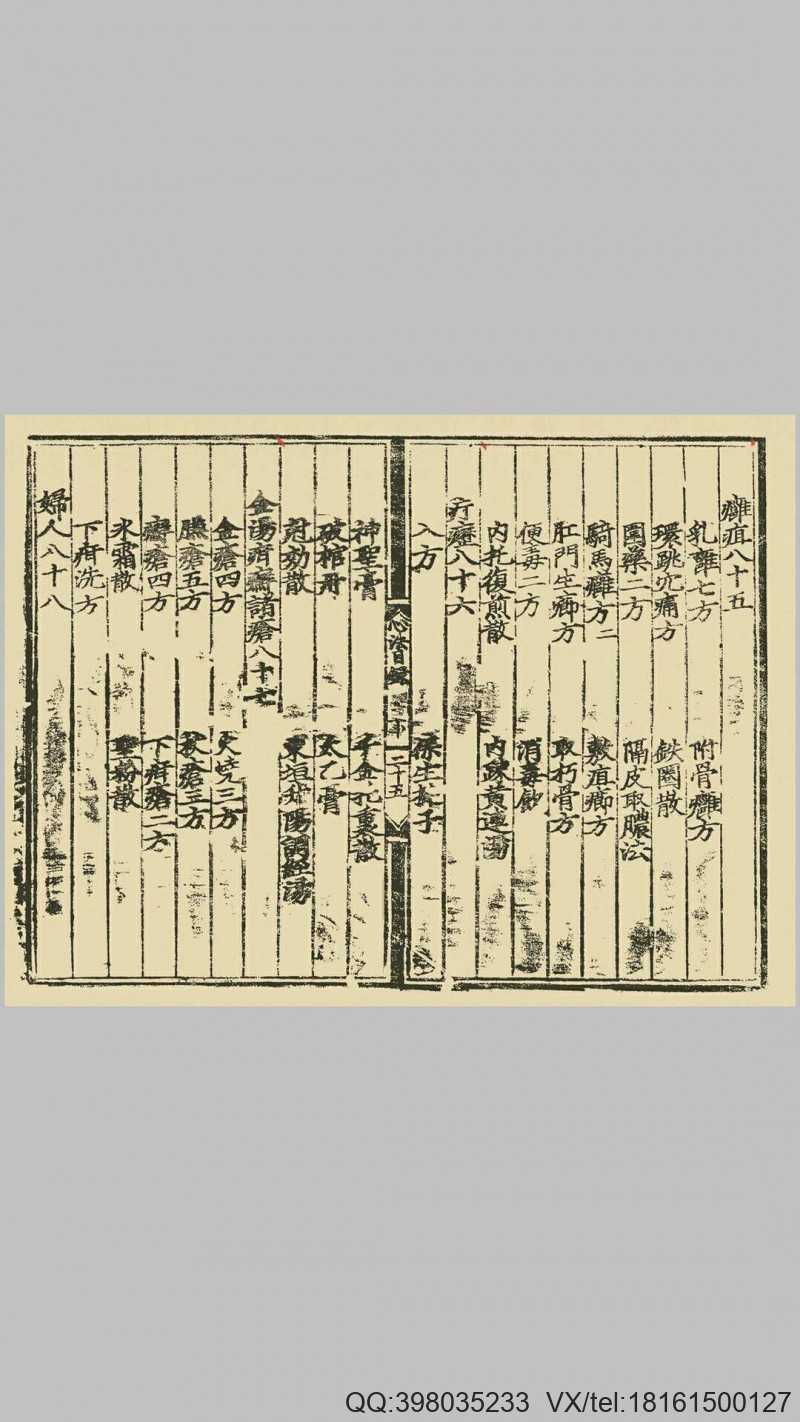 癰疽八十五
乳癰七方 附骨癰方
環跳穴痛方 鉄圈散
圍藥二方 隔皮取膿法
騎馬癰方二 敷疽癤方
肛門生癤方 取朽骨方
便毒二方 消毒飲
內托復煎散 內踈黃連湯
疔癧八十六
入方 保生挺子
心法目録
二十五
神聖膏 千金托裏散
破棺丹 太乙膏
尅効散 東垣升陽調經湯
金湯疳癬諸瘡八十七
金瘡四方 火燒三方
臁瘡五方 瘡三方
癬瘡四方 下疳瘡二方
氷霜散 聖粉散
下疳洗方
婦人八十八
QQ:398035233 VX/tel:18161500127